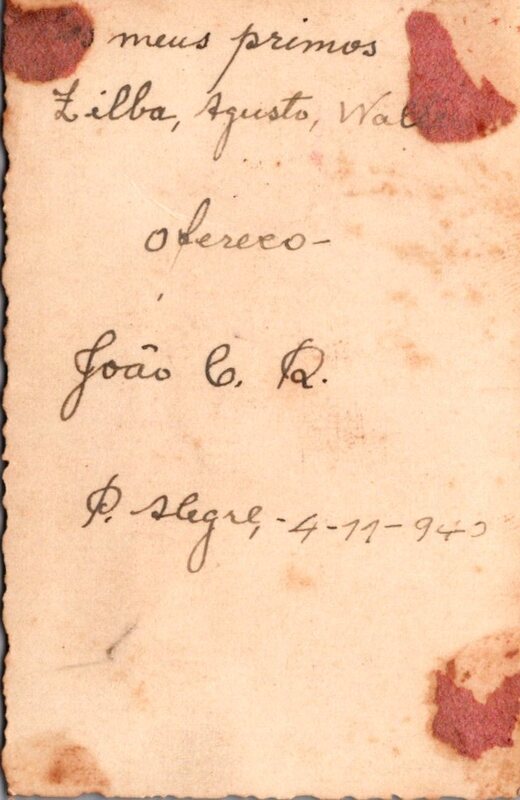 meus primos
Zilba, Agusto,
ofereco-
João C. R.
P. Alegre, -4-11-940